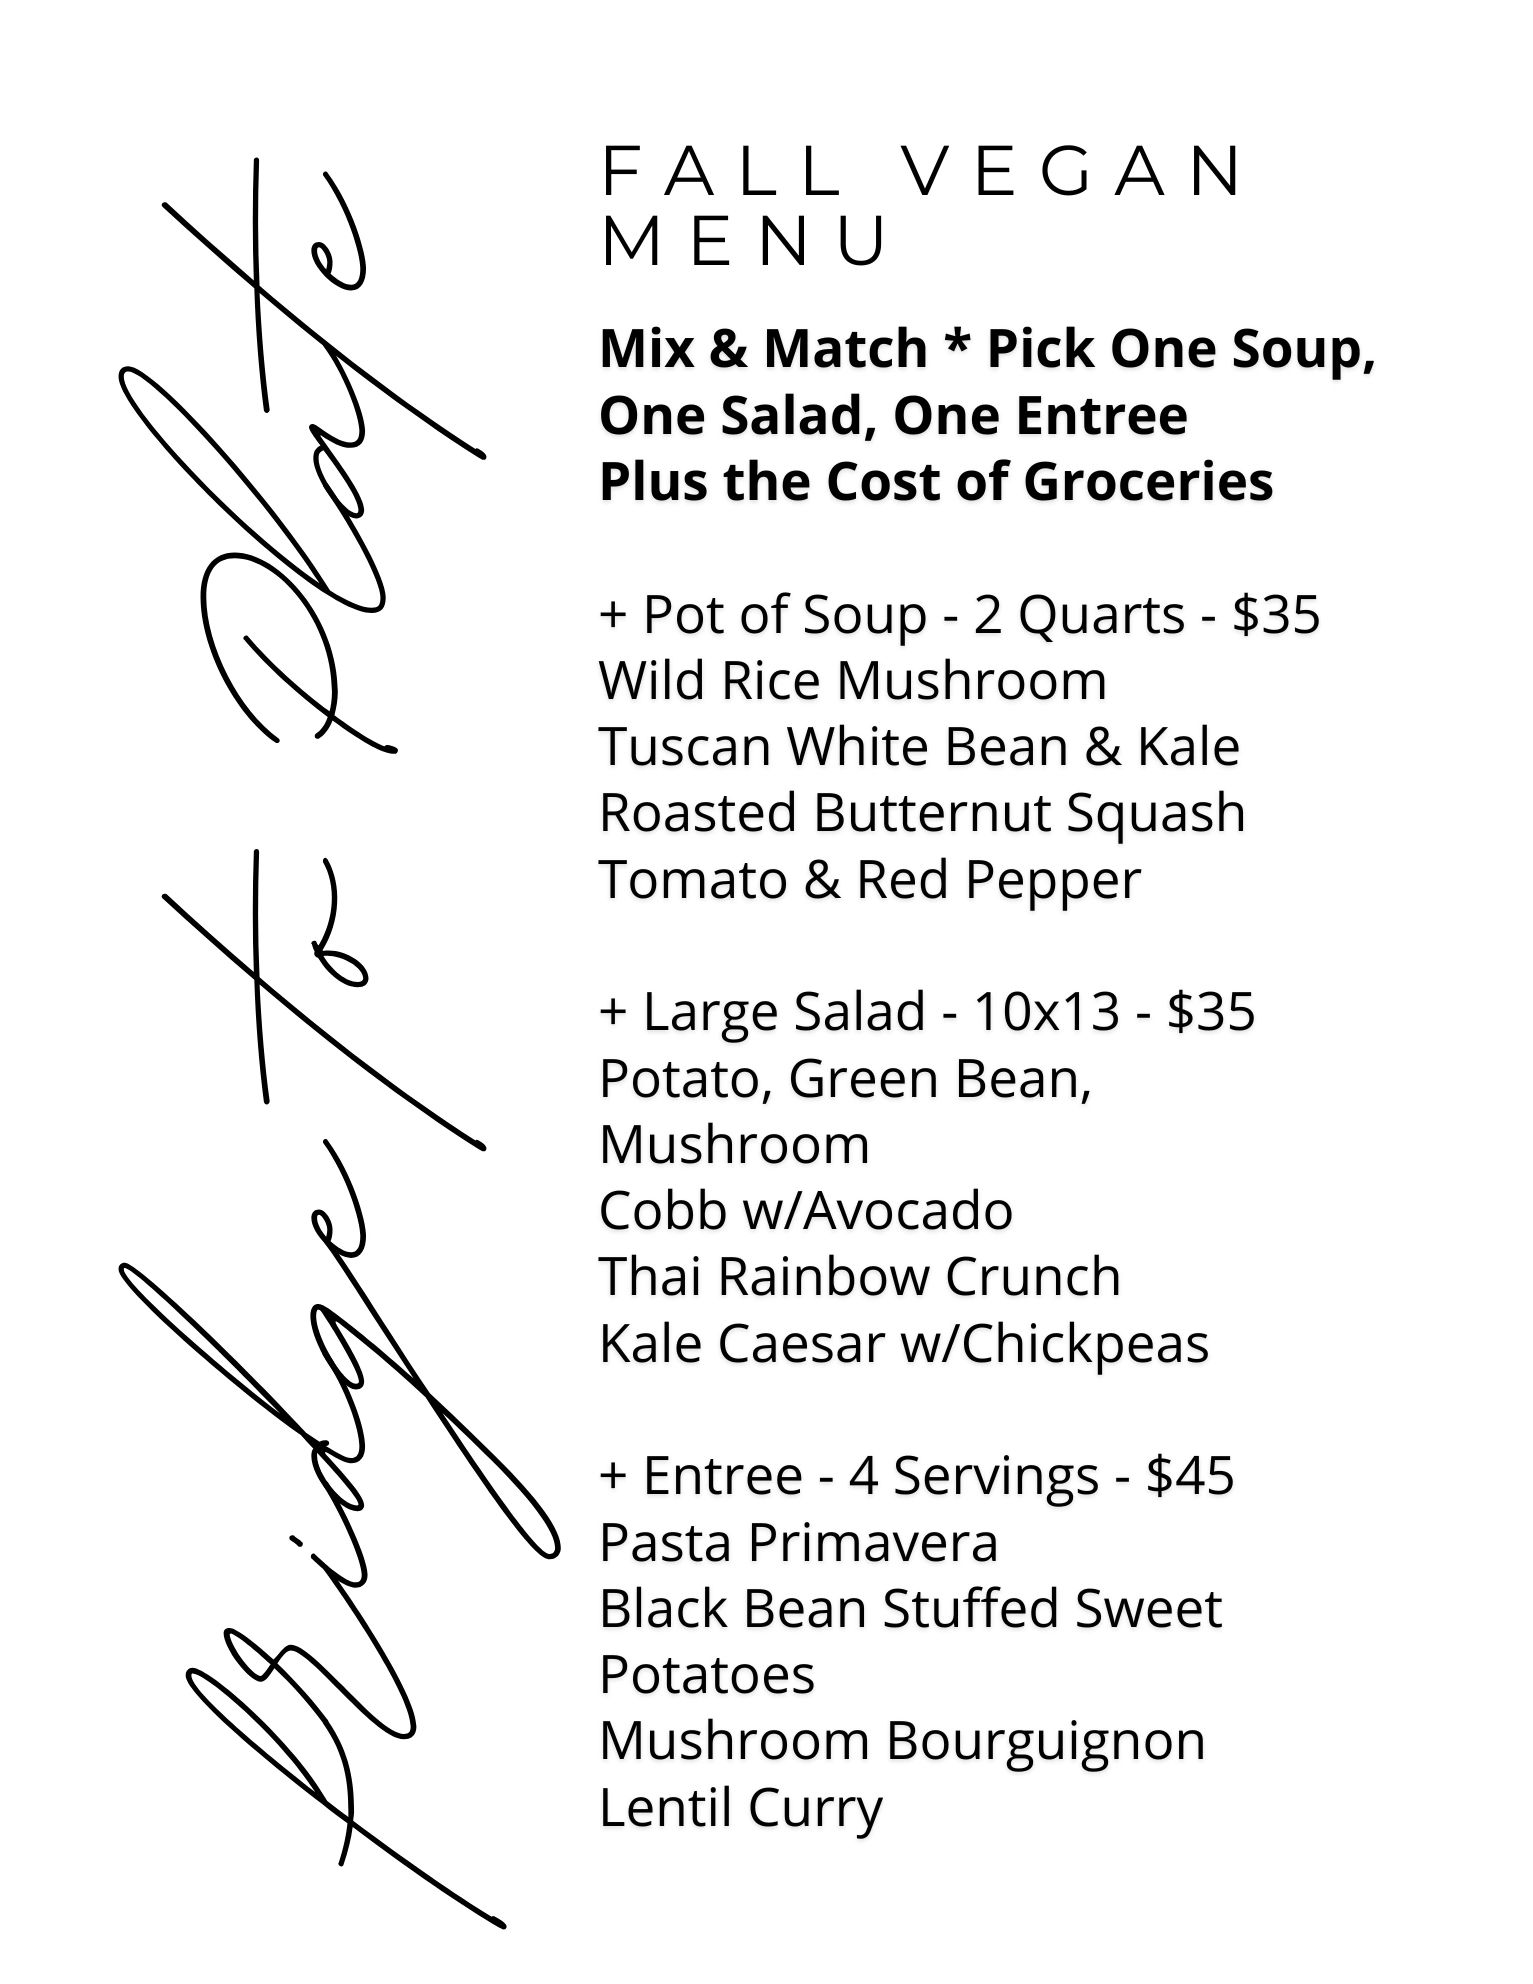 Bridge to Plate
FALL VEGAN
MENU
Mix & Match * Pick One Soup,
One Salad, One Entree
Plus the Cost of Groceries
+ Pot of Soup - 2 Quarts - $35
Wild Rice Mushroom
Tuscan White Bean & Kale
Roasted Butternut Squash
Tomato & Red Pepper
+ Large Salad - 10x13 - $35
Potato, Green Bean,
Mushroom
Cobb w/Avocado
Thai Rainbow Crunch
Kale Caesar w/Chickpeas
+ Entree - 4 Servings - $45
Pasta Primavera
Black Bean Stuffed Sweet
Potatoes
Mushroom Bourguignon
Lentil Curry